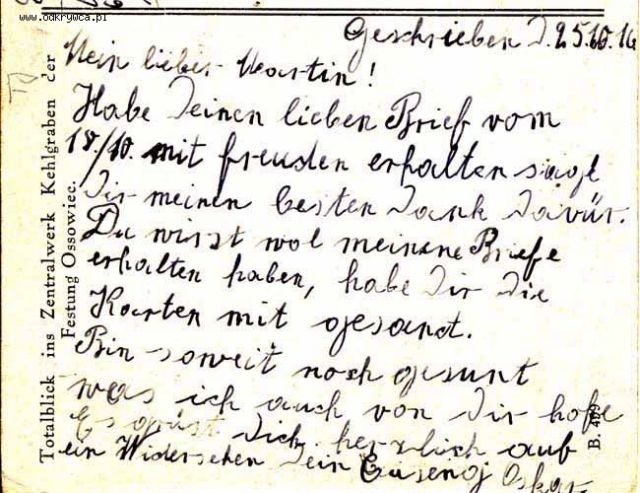 www.odkrywca.pl
Geschrieben d. 25.10.16
Mein lieber Martin!
Habe Deinen lieben Brief vom
18./10. mit freuden erhalten sage
Dir meinen besten Dank davür.
Du wirst wol meinene Briefe
erhalten haben, habe Dir die
Karten mit gesandt.
Bin soweit noch gesunt
was ich auch von Dir hofe
Es grüst Dich herzlich auf
ein Widersehen Dein Oskar
Totalblick ins Zentralwerk Kehlgraben der
Festung Ossowiec.
B. 409